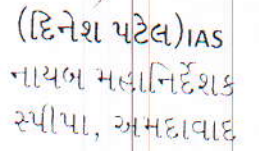 (દિનેશ પટેલ)IAS
નાયબ મહાનિર્દેશક
સ્પીપા, અમદાવાદ